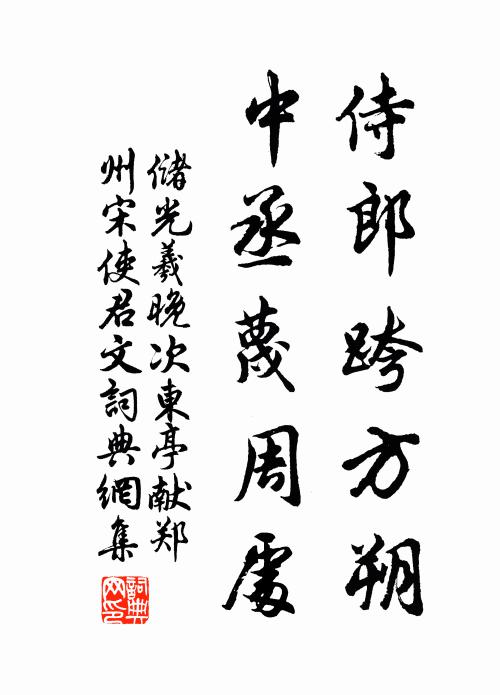 侍郎跨方朔
中丞蔑周處
儲光羲晚次東亭献郑
州宋使君文詞典網集